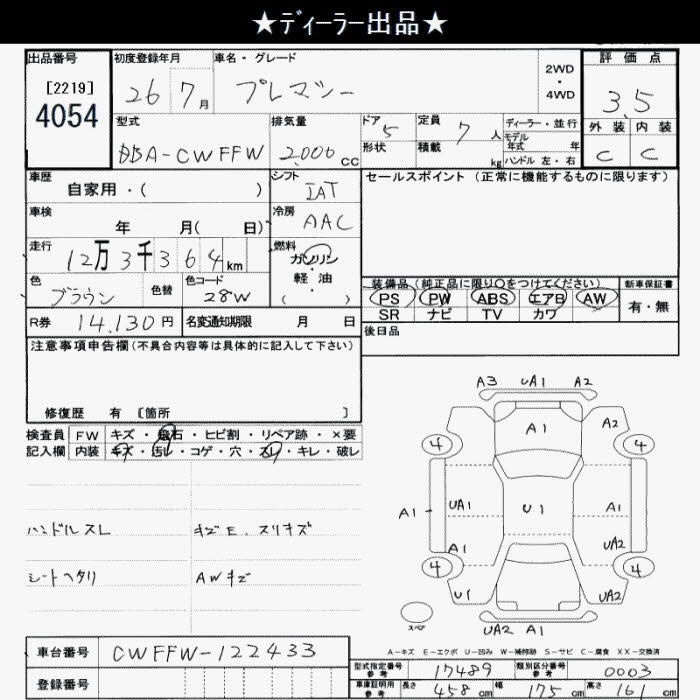 ★ディーラー出品★
出品番号 初度登録年月 車名・グレード 2WD・4WD 評価点
[2219] 4054 26年 7月 プレマシー 3.5
外装 内装
C C
型式 排気量 ドア 5 定員 7人 ディーラー・並行
DBA-CWFFW 2,000cc 形状 積載 kg モデル年式 年
ハンドル 左・右
車歴 自家用・( ) シフト IAT セールスポイント(正常に機能するものに限ります)
車検 年 月( 日) 冷房 AAC
走行 12万3千364km 燃料 ガソリン・軽油 ( )
色 ブラウン 色替 色コード 28W
装備品(純正品に限り○をつけてください) 新車保証書
PS PW ABS エアB AW 有・無
SR ナビ TV カワ
R券 14,130円 名変通知期限 月 日 後日品
注意事項申告欄(不具合内容等は具体的に記入して下さい)
修復歴 有 〔箇所 〕
検査員 FW キズ・飛石・ヒビ割・リペア跡・×要
記入欄 内装 キズ・汚レ・コゲ・穴・スレ・キレ・破レ
ハンドルスレ キズE.スリキズ
シートヘタリ AWキズ
A3 UA1 A2
A1 A2
4 4
A1 UA1 U1 A1
A1 UA2
4 4
U1 UA2
スペア UA2 A1
A-キズ E-エクボ U-凹み W-補修跡 S-サビ C-腐食 XX-交換済
車台番号 CWFFW-122433
登録番号
型式指定番号 参考 17489 類別区分番号 参考 0003
車庫証明用 参考 長さ 458cm 幅 175cm 高さ 161cm